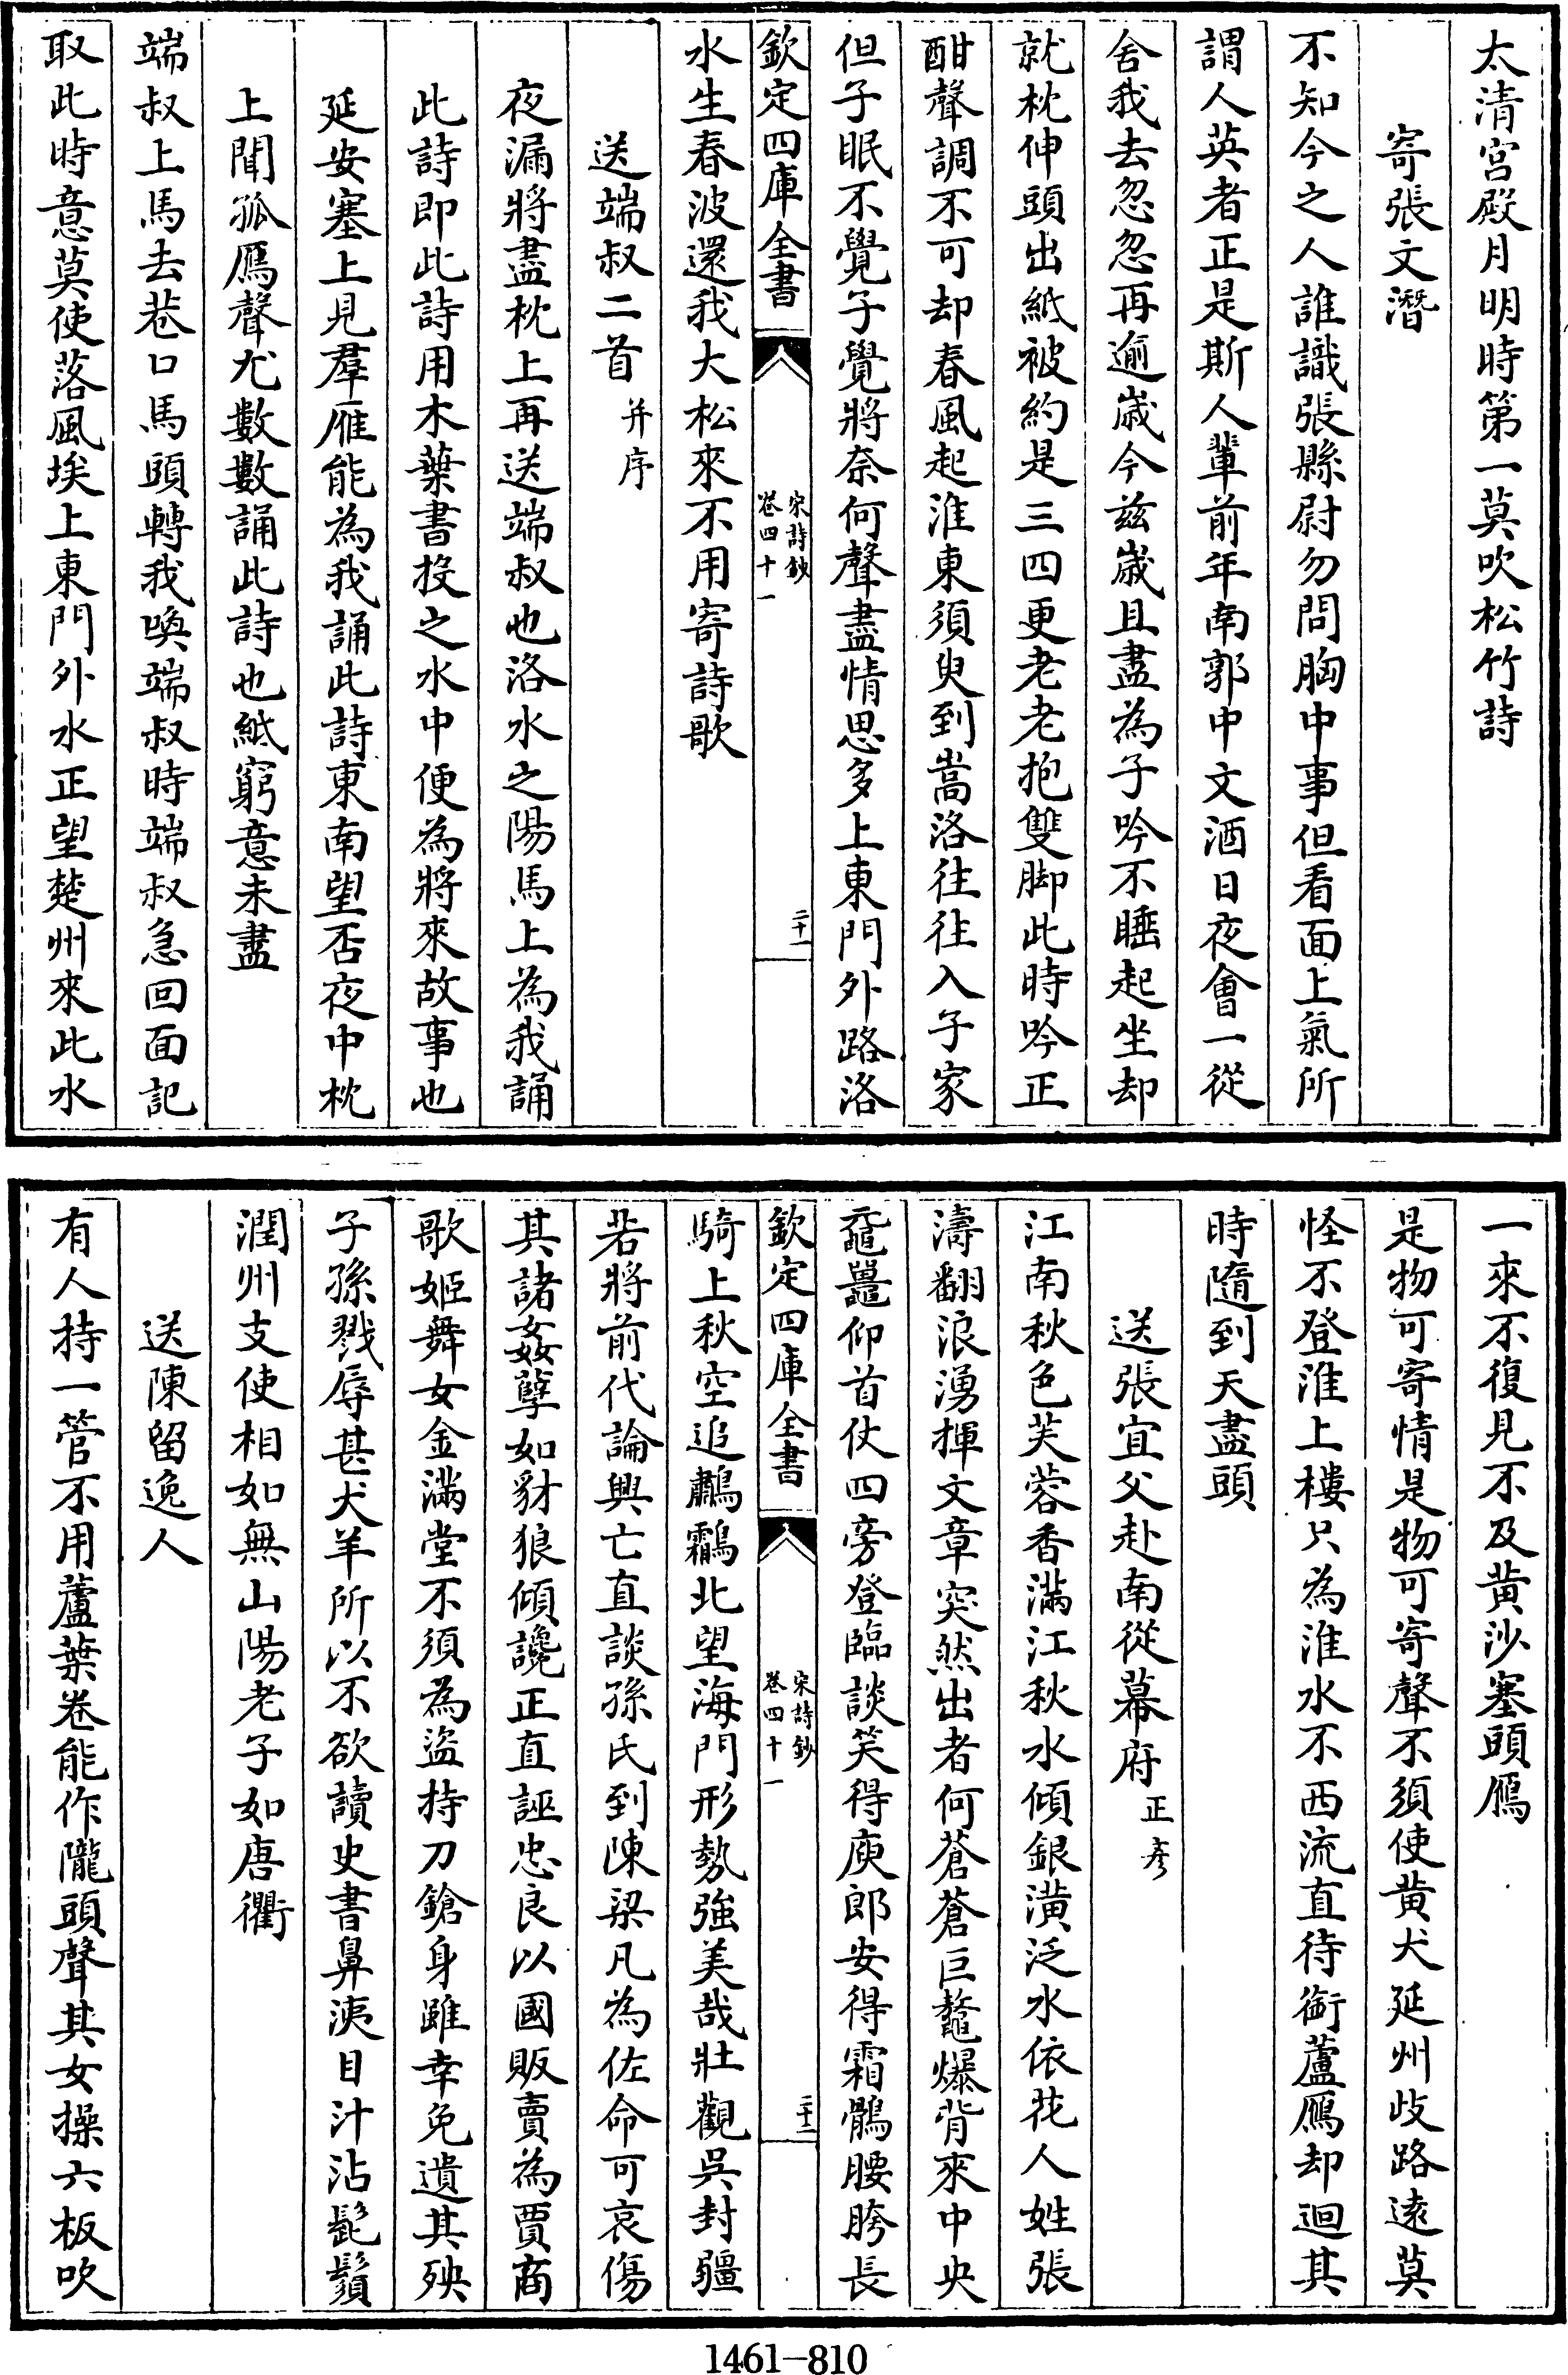 太清宮殿月明時第一莫吹松竹詩
寄張文潛
不知今之人誰識張縣尉勿問胸中事但看面上氣所
謂人英者正是斯人輩前年南郭中文酒日夜會一從
舍我去忽忽再逾歲今兹歲且盡為子吟不睡起坐却
就枕伸頭出紙被約是三四更老老抱雙脚此時吟正
酣聲調不可却春風起淮東須臾到嵩洛往往入子家
但子眠不覺子覺將奈何聲盡情思多上東門外路洛
欽定四庫全書
宋詩鈔
卷四十一
二十一
水生春波還我大松來不用寄詩歌
送端叔二首并序
夜漏將盡枕上再送端叔也洛水之陽馬上為我誦
此詩即此詩用木葉書投之水中便為將來故事也
延安塞上見羣雁能為我誦此詩東南望否夜中枕
上聞孤鴈聲尤數數誦此詩也紙窮意未盡
端叔上馬去巷口馬頭轉我喚端叔時端叔急回面記
取此時意莫使落風埃上東門外水正望楚州來此水
一來不復見不及黄沙塞頭鴈
是物可寄情是物可寄聲不須使黄犬延州歧路遠莫
怪不登淮上樓只為淮水不西流直待銜蘆鴈却迴其
時隨到天盡頭
送張宜父赴南從幕府正彦
江南秋色芙蓉香滿江秋水傾銀潢泛水依花人姓張
濤翻浪湧揮文章突然出者何蒼蒼巨鼇爆背來中央
黿鼉仰首仗四旁登臨談笑得庾郎安得霜鶻腰胯長
欽定四庫全書
宋詩鈔
卷四十一
二十二
騎上秋空追鸝鸘北望海門形勢強美哉壯觀吳封疆
若將前代論興亡直談孫氏到陳梁凡為佐命可哀傷
其諸姦孽如豺狼傾讒正直誣忠良以國販賣為賈商
歌姬舞女金滿堂不須為盜持刀鎗身雖幸免遺其殃
子孫戮辱甚犬羊所以不欲讀史書鼻洟目汁沾髭鬚
潤州支使相如無山陽老子如唐衢
送陳留逸人
有人持一管不用蘆葉卷能作隴頭聲其女操六板吹
1461-810